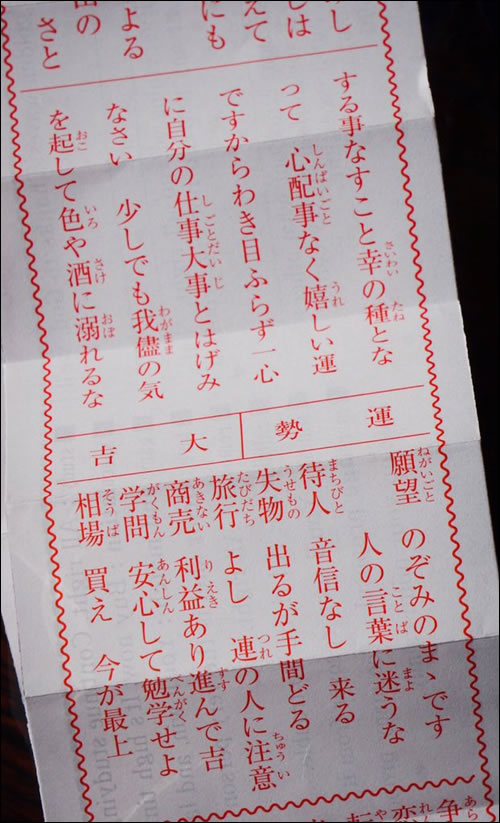 し
しは
えて
にも
よる
の
さと
する事なすこと幸の種とな
って　心配事なく嬉しい運
ですからわき目ふらず一心
に自分の仕事大事とはげみ
なさい　少しでも我儘の気
を起して色や酒に溺れるな
運勢　大吉
願望　のぞみのまゝです
人の言葉に迷うな
待人　音信なし　来る
失物　出るが手間どる
旅行　よし　連の人に注意
商売　利益あり進んで吉
学問　安心して勉学せよ
相場　買え　今が最上
争
恋